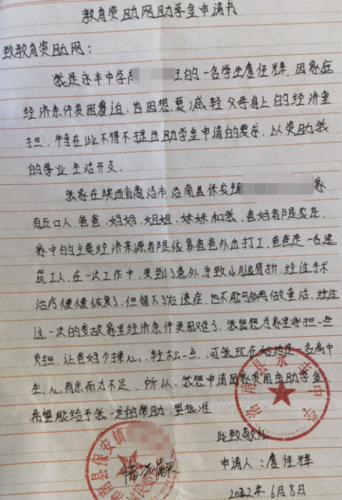 教育资助网助学金申请书
致教育资助网：
我是永丰中学高 的一名学生虞佳辉，因家庭
经济条件贫困窘迫，也因想要减轻父母身上的经济重
担，特在此不得不提出助学金申请的要求，以资助我
的学业生活开支。
我家在陕西省商洛市洛南县保安镇 家
有五口人，爸爸，妈妈，姐姐，妹妹和我，爸妈都是农民，
家中的主要经济来源都是依靠爸爸外出打工，爸爸是一名建
筑工人，在一次工作中，受到了意外，导致小腿骨折，经过手术
治疗慢慢恢复了，但留下了后遗症，也不能够再做重活，经过
这一次的变故家里经济条件更困难了，我想想为家里承担一些
负担，让爸妈少操心，轻松一点，可我现在始终是一名高中
生，心有余而力不足，所以，我想申请国家贫困生助学金，
希望能给予我一定的帮助，望批准
此致敬礼
申请人：虞佳辉
2022年6月8日
洛南县永丰中学
洛南县保安镇